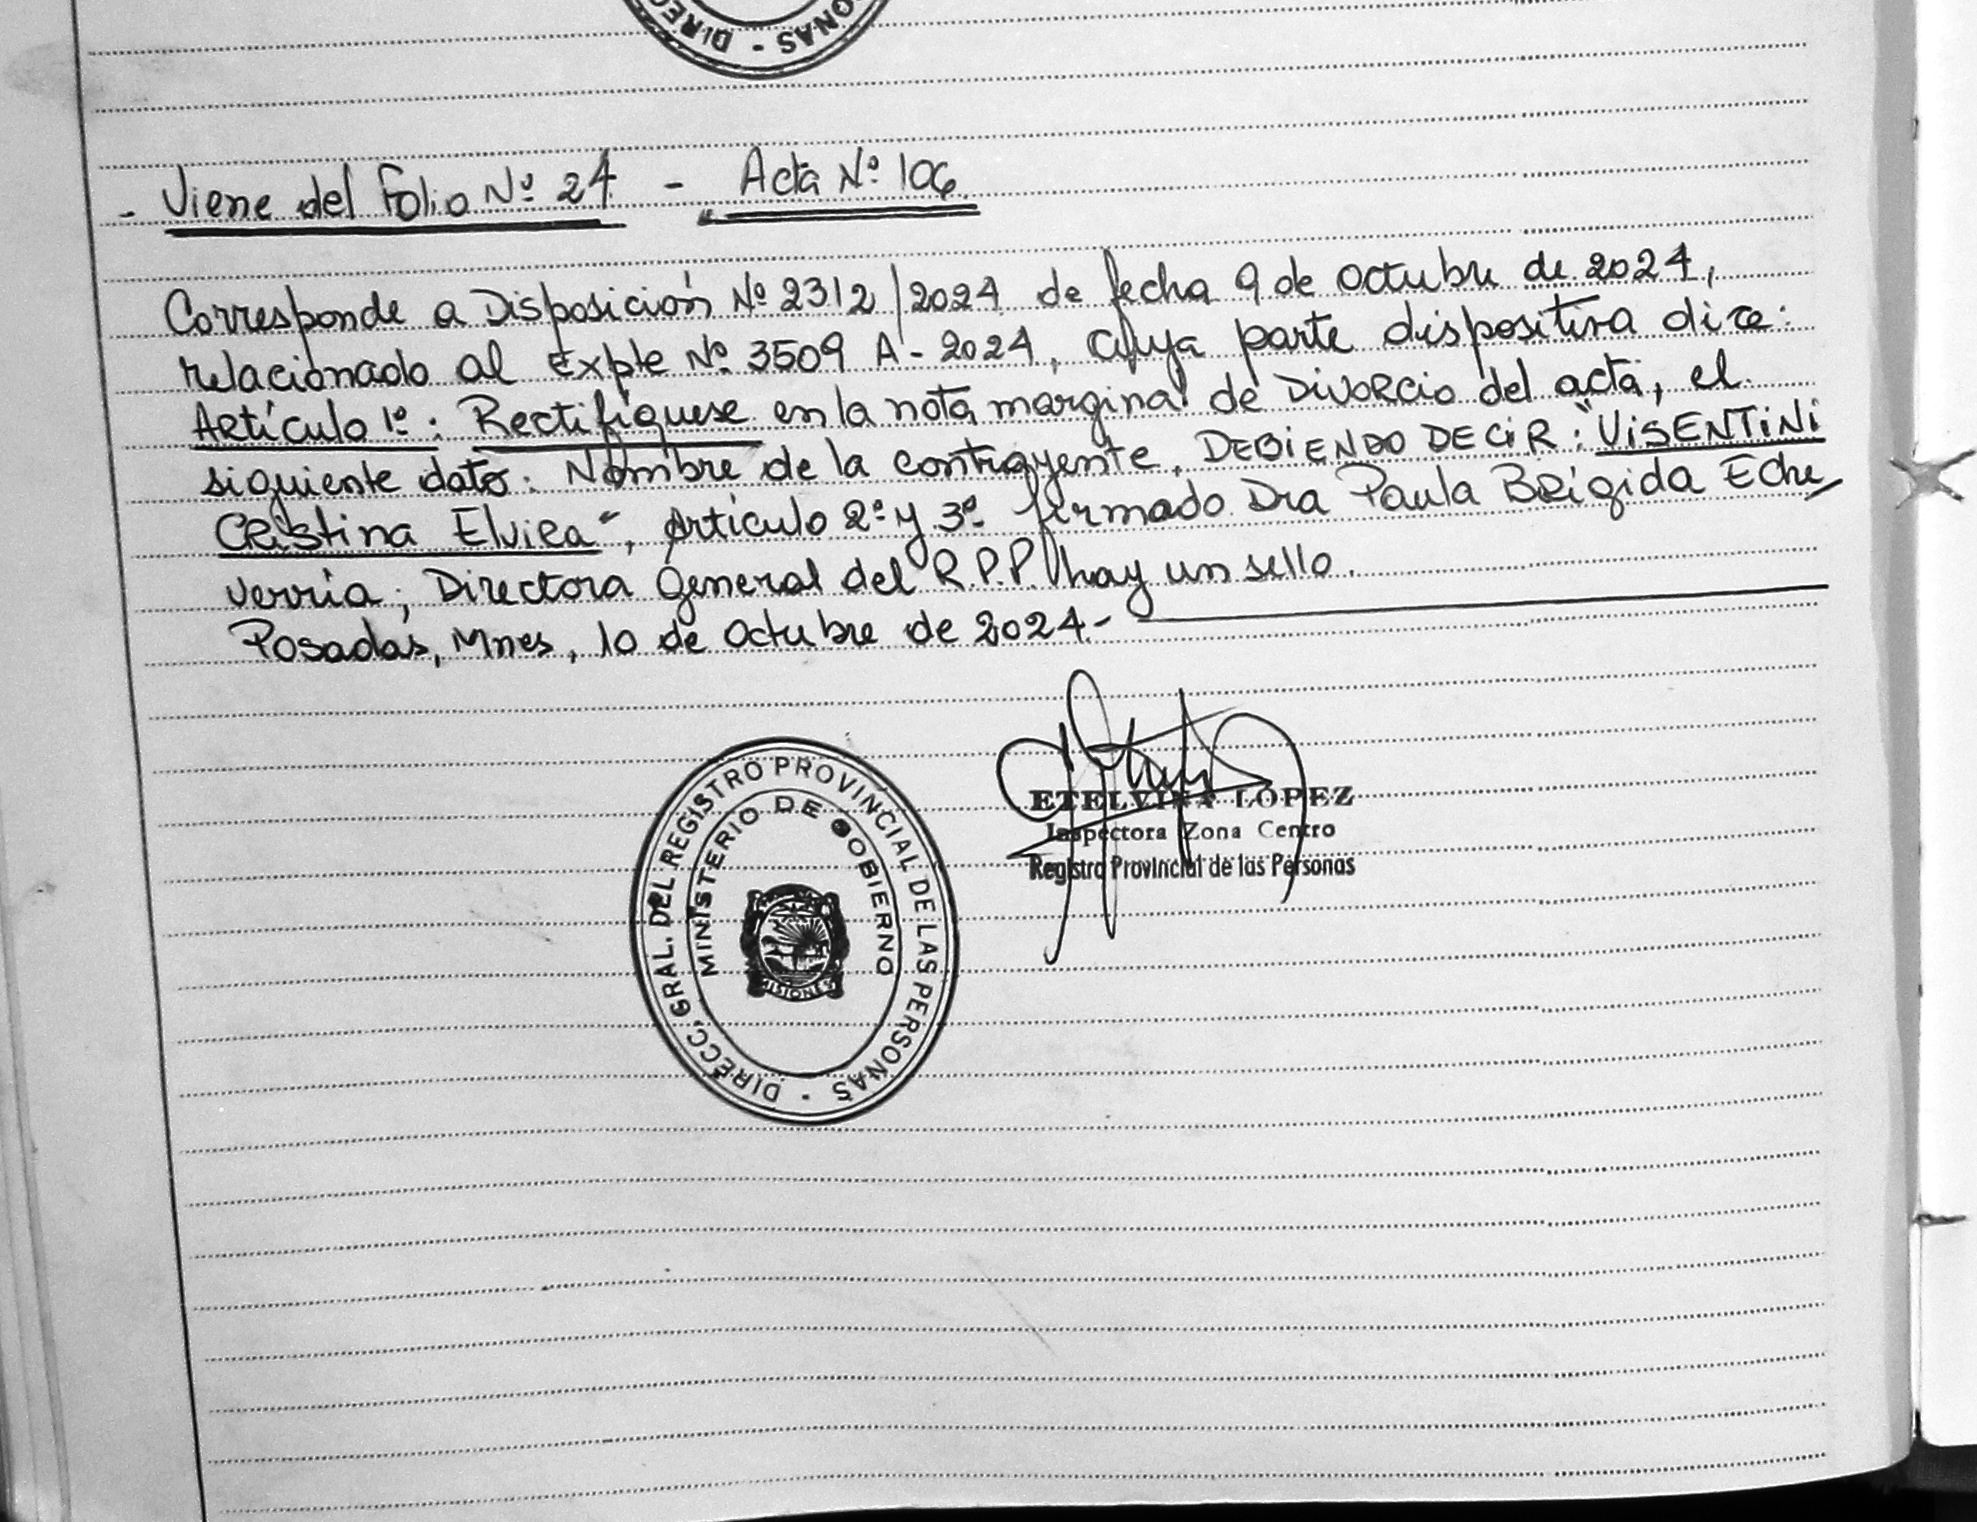 DIRECC
ONAS - DIREC
- Viene del Folio Nº 24 - Acta Nº 106
Corresponde a Disposición Nº 2312/2024 de fecha 9 de Octubre de 2024,
relacionado al Expte Nº 3509 A-2024, cuya parte dispositiva dice:
Artículo 1º: Rectifíquese en la nota marginal de Divorcio del acta, el
siguiente dato: Nombre de la contrayente, DEBIENDO DECIR: "VISENTINI
Cristina Elvira", Artículo 2º y 3º firmado Dra Paula Brígida Eche
verría; Directora General del R.P.P. hay un sello.
Posadas, Mnes, 10 de Octubre de 2024.-
DIRECC. GRAL. DEL REGISTRO PROVINCIAL DE LAS PERSONAS -
MINISTERIO DE GOBIERNO
MISIONES
ETELVINA LOPEZ
Inspectora Zona Centro
Registro Provincial de las Personas